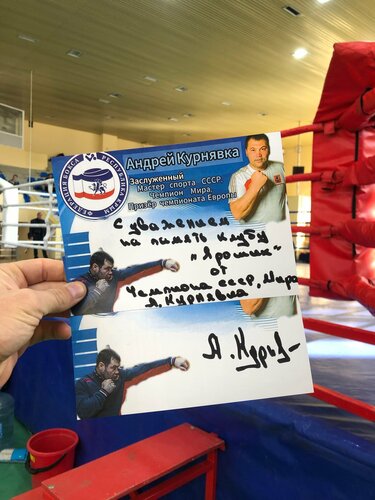 ФЕДЕРАЦИЯ БОКСА РЕСПУБЛИКИ КРЫМ
Андрей Курнявка
Заслуженный
Мастер спорта СССР
Чемпион Мира,
Призёр чемпионата Европы
С уважением
на память клубу
"Ярошик"
от
Чемпиона СССР, Мира
А. Курнявка
А. Курн-